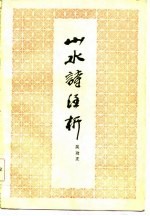 山水詩注析